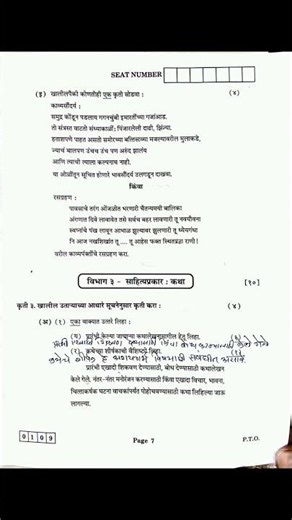 SEAT NUMBER
(इ) खालीलपैकी कोणतीही एक कृती सोडवा : (४)
काव्यसौंदर्य :
समुद्र कोंडून पडलाय गगनचुंबी इमारतींच्या गजांआड.
तो संत्रस्त वाटतो संध्याकाळी: पिंजारलेली दाढी, झिंज्या.
हताशपणे पाहत असतो समोरच्या बत्तिसाव्या मजल्यावरील मुलाकडे,
ज्याचं बालपण उंचच उंच पण अरुंद झालंय
आणि त्याची त्याला कल्पनाच नाही.
या ओळींतून सूचित होणारे भावसौंदर्य उलगडून दाखवा.
किंवा
रसग्रहण :
पावसाचे तरंग ओंजळीत भरणारी चैतन्यमयी बालिका
अंगणात दिवे लावावेत तसे सर्वच बहर लावणारी तू नवयौवना
स्वप्नांचे पंख लावून आभाळ झुल्यावर झुलणारी तू ध्येयगंधा
नि आज नखशिखांत तू .... तू आहेस फक्त स्थितप्रज्ञा राणी !
वरील काव्यपंक्तींचे रसग्रहण करा.
विभाग ३ - साहित्यप्रकार : कथा [१०]
कृती ३. खालील उताऱ्याच्या आधारे सूचनेनुसार कृती करा : (४)
(अ) (१) एका वाक्यात उत्तरे लिहा :
(य) प्रारंभी केल्या जाणाऱ्या कथालेखनामागील हेतू लिहा.
(र) कथेच्या शीर्षकाची वैशिष्ट्ये लिहा. (१)
प्रारंभी एखादी शिकवण देण्यासाठी, बोध देण्यासाठी कथालेखन
केले गेले. नंतर-नंतर मनोरंजन करण्यासाठी किंवा एखादा विचार, भावना,
चित्ताकर्षक घटना वाचकांपर्यंत पोहोचवण्यासाठी कथा लिहिल्या जाऊ
लागल्या.
0 1 0 9
Page 7
P.T.O.